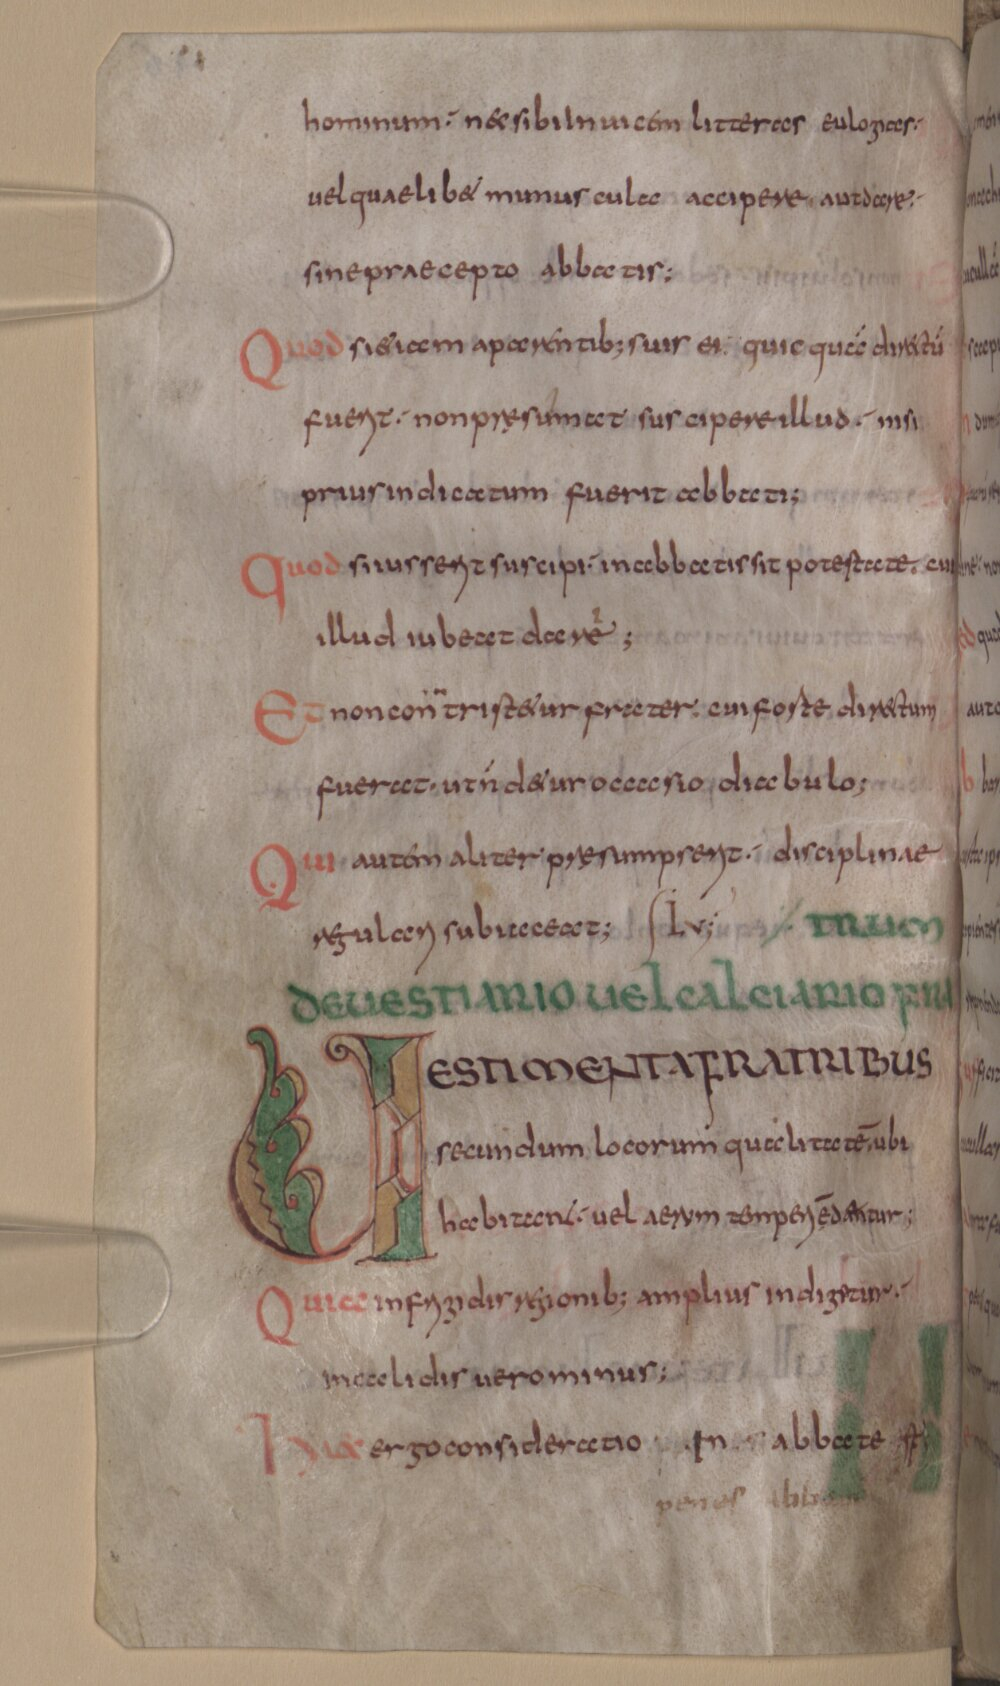 hominum· nec sibi inuicem litteras eulogias·
uel quaelibet munuscula accipere· aut dare·
sine praecepto abbatis;
Quod si etiam a parentib; suis ei quicquã directũ
fuerit· non pręsumat suscipere illud· nisi
prius indicatum fuerit abbati;
Quod si iusserit suscipi· in abbatis sit potestate· cui
illud iubeat dare;
Et non contristetur frater· cui forte directum
fuerat· ut ñ detur occasio diabulo;
Qui autem aliter pręsumpserit· disciplinae
regulari subiaceat; LV; TRUM
DE VESTIARIO VEL CALCIARIO FRA
VESTIMENTA FRATRIBUS
secundum locorum qualitatẽ· ubi
habitant· uel aerum temperiẽ dentur;
Quia in frigidis regionib; amplius indigetur·
in calidis uero minus;
Haec ergo consideratio in abbate st;
penes abba